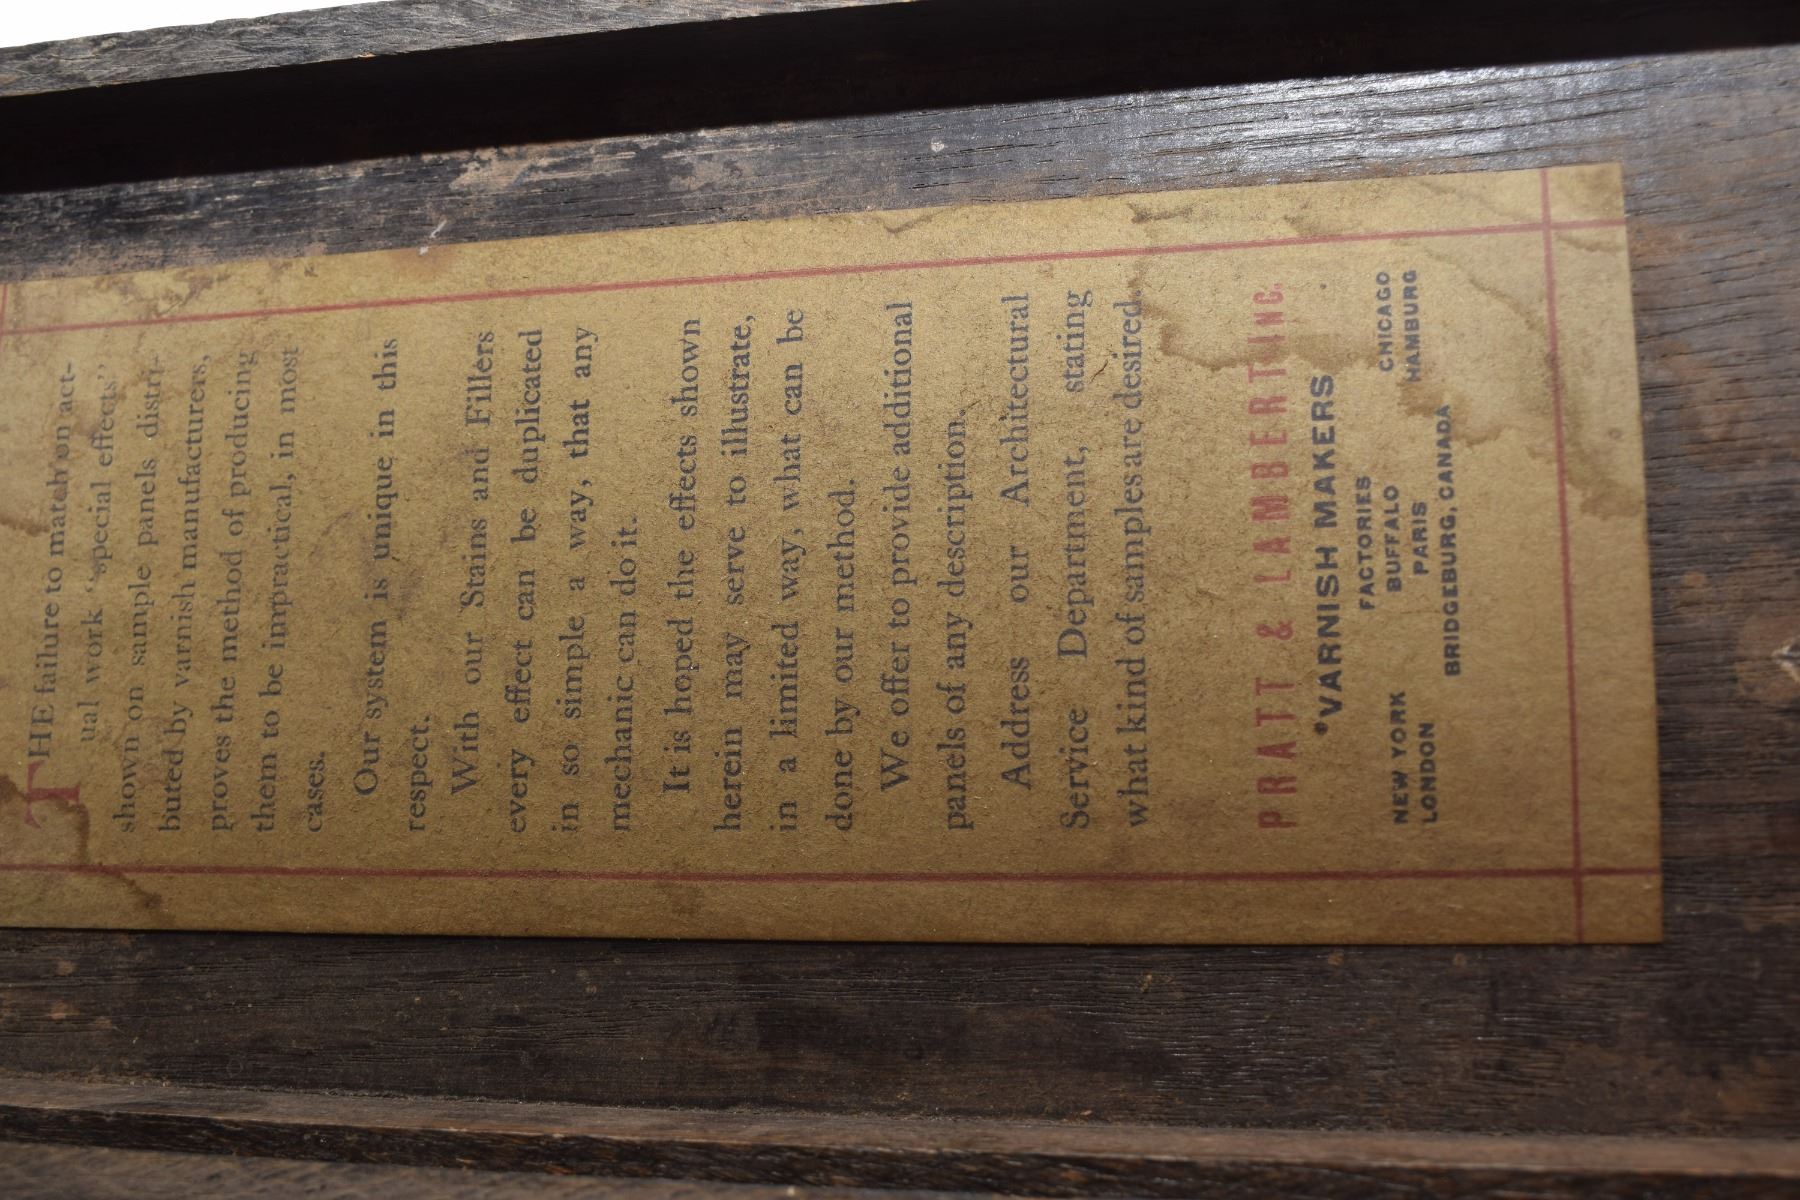 THE failure to match on act-
ual work "special effects"
shown on sample panels distri-
buted by varnish manufacturers,
proves the method of producing
them to be impractical, in most
cases.
Our system is unique in this
respect.
With our Stains and Fillers
every effect can be duplicated
in so simple a way, that any
mechanic can do it.
It is hoped the effects shown
herein may serve to illustrate,
in a limited way, what can be
done by our method.
We offer to provide additional
panels of any description.
Address our Architectural
Service Department, stating
what kind of samples are desired.
PRATT & LAMBERT INC.
VARNISH MAKERS
FACTORIES
NEW YORK BUFFALO CHICAGO
LONDON PARIS HAMBURG
BRIDGEBURG, CANADA